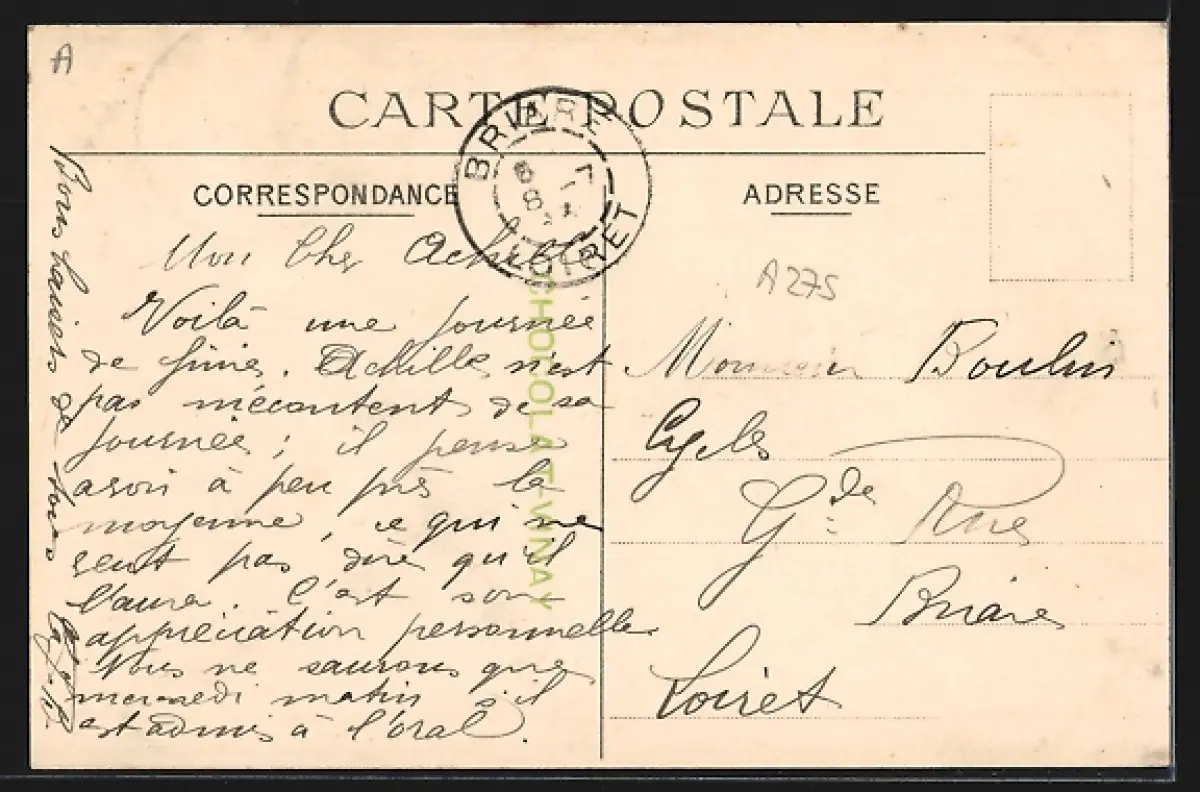 A
CARTE POSTALE
CORRESPONDANCE
ADRESSE
BRIARE
8 -7
LOIRET
A275
CHOCOLAT-VINAY
Mon Cher Achille
Voilà une journée
de finie. Achille n'est
pas mécontent de sa
journée ; il pense
avoir à peu près la
moyenne, ce qui ne
veut pas dire qu'il
l'aura. C'est son
appréciation personnelle.
Nous ne saurons que
mercredi matin s'il
est admis à l'oral.
Bons baisers de tous
Monsieur Boulin
Cycles
Gde Rue
Briare
Loiret